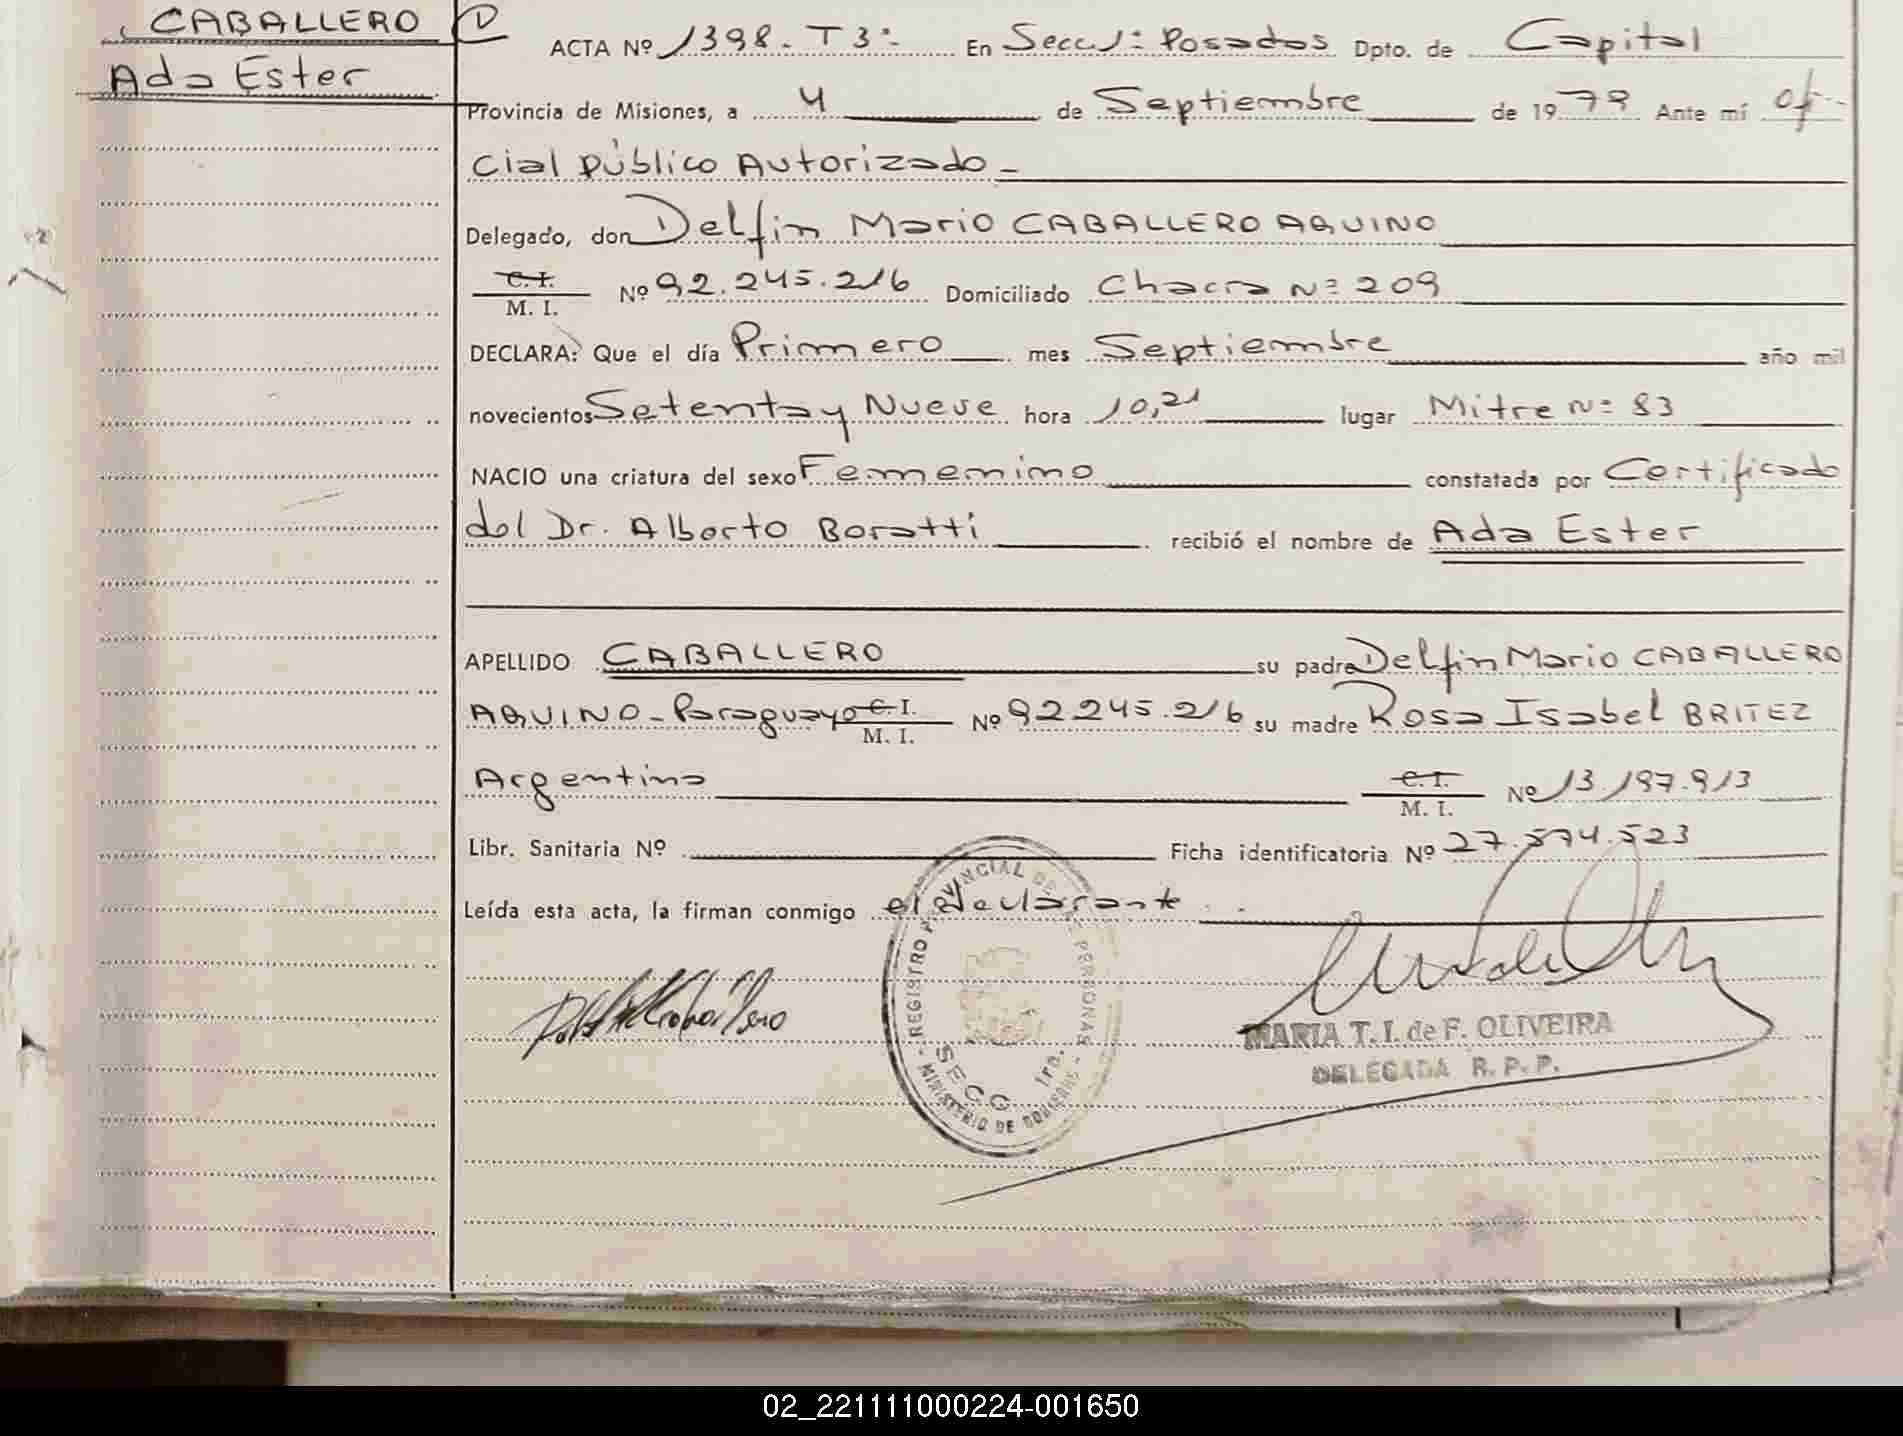 CABALLERO
Ada Ester
ACTA Nº 1398 - T3º- En Secc 1ª Posadas Dpto. de Capital
Provincia de Misiones, a 4 de Septiembre de 1979 Ante mí ofi-
cial Público Autorizado -
Delegado, don Delfin Mario CABALLERO AQUINO
C. I.
M. I. Nº 92.245.216 Domiciliado Chacra Nº 209
DECLARA: Que el día Primero mes Septiembre año mil
novecientos Setenta y Nueve hora 10,21 lugar Mitre Nº 83
NACIO una criatura del sexo Femenino constatada por Certificado
del Dr. Alberto Boratti recibió el nombre de Ada Ester
APELLIDO CABALLERO su padre Delfin Mario CABALLERO
AQUINO - Paraguayo C. I. M. I. Nº 92.245.216 su madre Rosa Isabel BRITEZ
Argentina C. I. M. I. Nº 13.197.913
Libr. Sanitaria Nº Ficha identificatoria Nº 27.574.523
Leída esta acta, la firman conmigo el declarante
REGISTRO PROVINCIAL DE LAS PERSONAS
SECC 1ra.
MINISTERIO DE GOBIERNO
MARIA T. I. de F. OLIVEIRA
DELEGADA R. P. P.
02_221111000224-001650